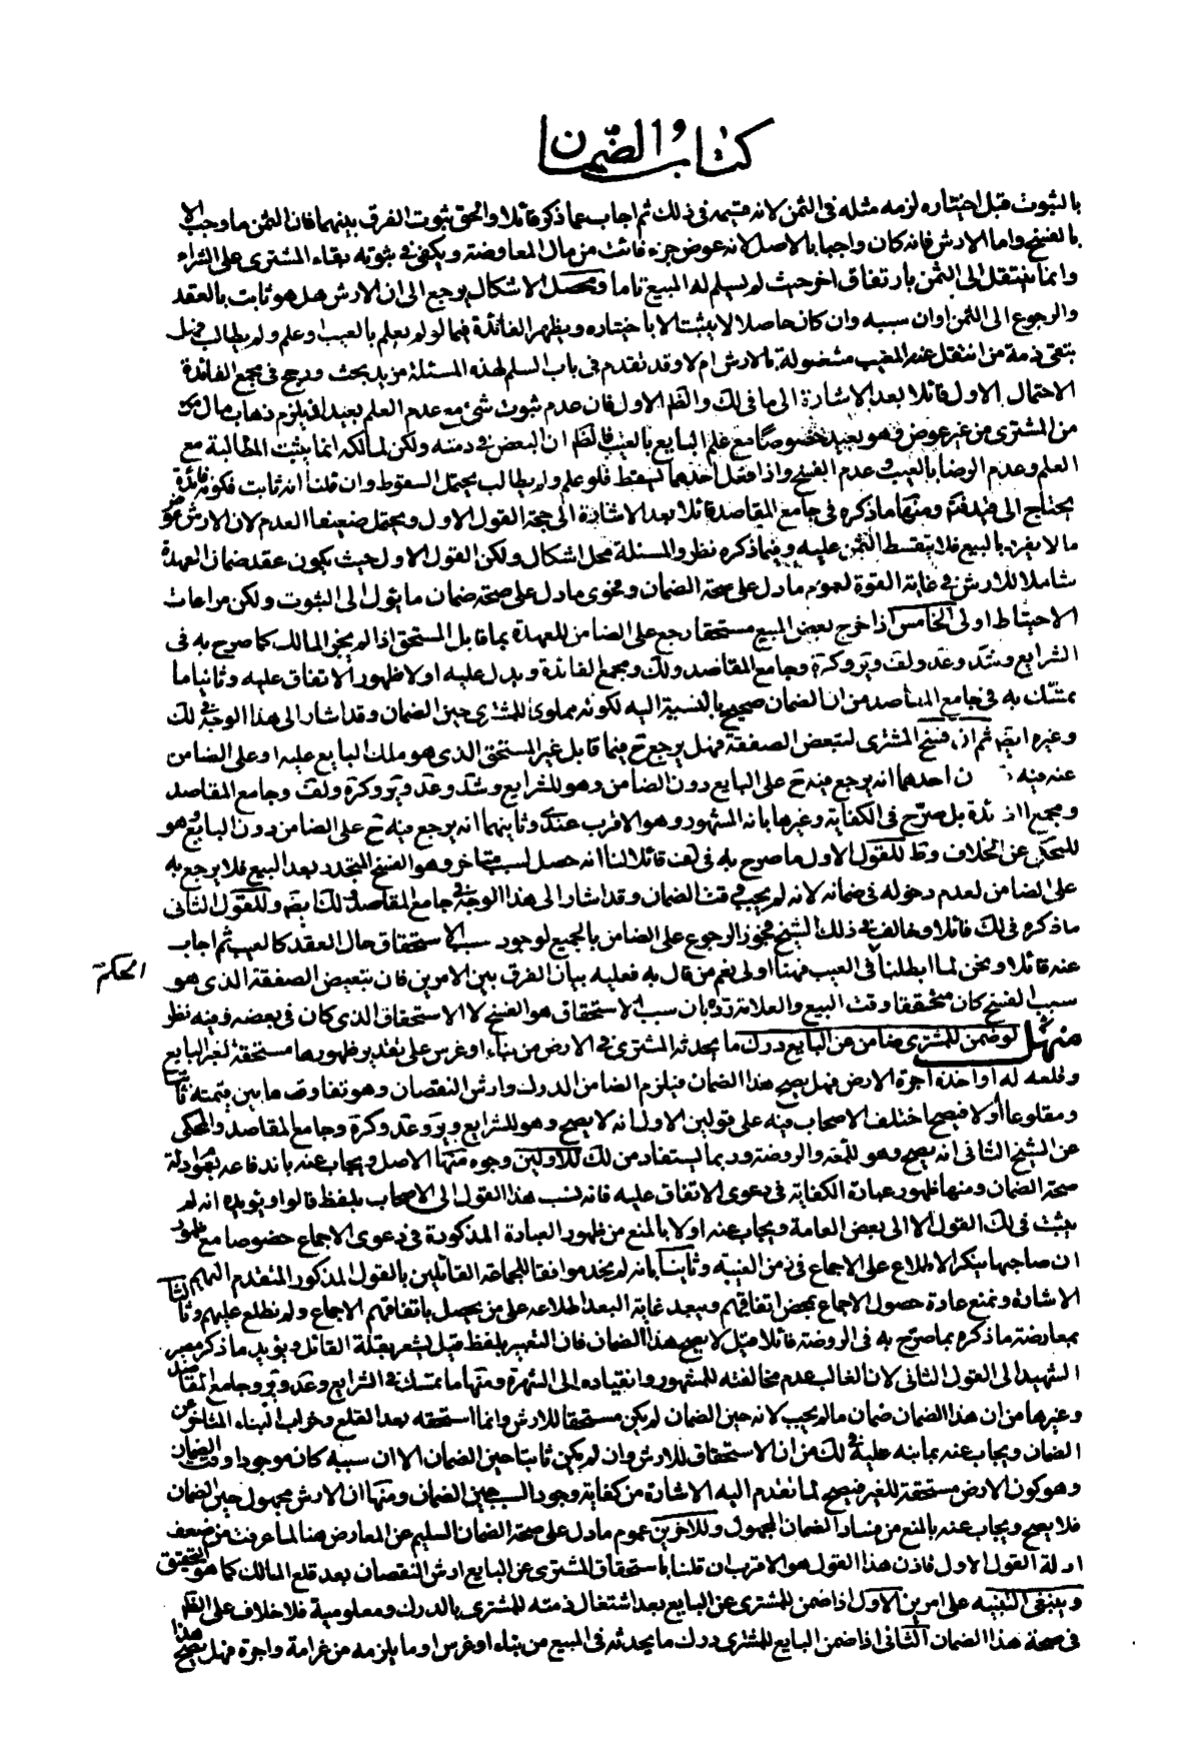 كتاب الضمان
بالثبوت قبل اختياره لزمه مثله فى الثمن لانه قسيمه فى ذلك ثم اجاب عما ذكره قائلا والحق ثبوت الفرق بينهما فان الثمن ما وجب الا
بالفسخ واما الارش فانه كان واجبا بالاصل لانه عوض جزء فائت من مال المعاوضة ويكفى فى ثبوته بقاء المشترى على الشراء
وانما ينتقل الى الثمن بارتفاق اخر حيث لم يسلم له المبيع تاما ومحصل الاشكال يرجع الى ان الارش هل هو ثابت بالعقد
والرجوع الى الثمن اوان سببه وان كان حاصلا لا يثبت الا باختياره ويظهر الفائدة فيما لو لم يعلم بالعيب او علم ولم يطالب فهل
تبقى ذمة من انتقل عنه المعيب مشغولة بالارش ام لا وقد تقدم فى باب السلم لهذه المسئلة مزيد بحث ورجح فى مجمع الفائدة
الاحتمال الاول قائلا بعد الاشارة الى ما فى لك والظ الاول فان عدم ثبوت شئ مع عدم العلم بعيد اذ يلزم ذهاب مال
من المشترى من غير عوض وهو بعيد خصوصا مع علم البايع بالعيب فالظ ان البعض فى ذمته ولكن لمالكه انما يثبت المطالبة مع
العلم وعدم الرضا بالعيب وعدم الفسخ واذا فعل احدهما ليسقط فلو علم ولم يطالب يحتمل السقوط وان قلنا انه ثابت فكونه فائدة
يحتاج الى ومنها ما ذكره فى جامع المقاصد قائلا بعد الاشارة الى حجة القول الاول ويحتمل ضعيفا العدم لان الارش
ما لا يفرد بالبيع فلا يتقسط الثمن عليه وفيما ذكره نظر والمسئلة محل اشكال ولكن القول الاول حيث يكون عقد ضمان العهدة
شاملا للارش فى غاية القوة لعموم ما دل على صحة الضمان وفحوى ما دل على صحة ضمان ما يؤل الى الثبوت ولكن مراعات
الاحتياط اولى الخامس اذا خرج بعض المبيع مستحقا رجع على الضامن للعهدة بما قابل المستحق اذا لم يجز المالك كما صرح به فى
الشرايع وشد وعد ولف وير وكرة وجامع المقاصد ولك ومجمع الفائدة ويدل عليه اولا ظهور الاتفاق عليه وثانيا ما
تمسك به فى جامع المقاصد من ان الضمان صحيح بالنسبة اليه لكونه مملوكا للمشترى حين الضمان وقد اشار الى هذا الوجه فى لك
وغيره ايضا ثم ان فسخ المشترى لتبعض الصفقة فهل يرجع ح فيما قابل غير المستحق الذى هو ملك البايع عليه او على الضامن
عنه فيه ن احدهما انه يرجع فيه ح على البايع دون الضامن وهو للشرايع وشد وعد وير وكرة ولف وجامع المقاصد
ومجمع ئدة بل صرح فى الكفاية وغيرها بانه المشهور وهو الاقرب عندى وثانيهما انه يرجع فيه ح على الضامن دون البايع وهو
للمحكى عن الخلاف وط للقول الاول ما صرح به فى لف قائلا لنا انه حصل لسبب متاخر وهو الفسخ المتجدد بعد البيع فلا يرجع به
على الضامن لعدم دخوله فى ضمانه لانه لم يجب وقت الضمان وقد اشار الى هذا الوجه فى جامع المقاصد ولك ايضا وللقول الثانى
ما ذكره فى لك قائلا وخالف فى ذلك الشيخ فجوز الرجوع على الضامن بالجميع لوجود سبب الاستحقاق حال العقد كالعيب ثم اجاب
عنه قائلا ونحن لما ابطلنا فى العيب فهنا اولى نعم من قال به فعليه بيان الفرق بين الامرين فان تبعيض الصفقة الذى هو
الحكم
سبب الفسخ كان متحققا وقت البيع والعلامة رده بان سبب الاستحقاق هو الفسخ لا الاستحقاق الذى كان فى بعضه وفيه نظر
منهل لو ضمن للمشترى ضامن عن البايع درك ما يحدثه المشترى فى الارض من بناء او غرس على تقدير ظهورها مستحقة لغير البايع
وقلعه له او اخذه اجرة الارض فهل يصح هذا الضمان فيلزم الضامن الدرك وارش النقصان وهو تفاوت ما بين قيمته ثابتا
ومقلوعا او لا فيصح اختلف الاصحاب فيه على قولين الاول انه لا يصح وهو للشرايع وير وعد وكرة وجامع المقاصد والمحكى
عن الشيخ الثانى انه يصح وهو للمعه والروضة وربما يستفاد من لك للاولين وجوه منها الاصل ويجاب عنه باندفاعه بعموم ادلة
صحة الضمان ومنها ظهور عبارة الكفاية فى دعوى الاتفاق عليه فانه نسب هذا القول الى الاصحاب بلفظ قالوا ويؤيده انه لم
يثبت فى لك القول الا الى بعض العامة ويجاب عنه اولا بالمنع من ظهور العبارة المذكورة فى دعوى الاجماع خصوصا مع ظهور
ان صاحبها ينكر الاطلاع على الاجماع فى زمن الغيبة وثانيا بانه لم يخدموافقا للجماعة القائلين بالقول المذكور المتقدم اليهم
الاشارة ونمنع عادة حصول الاجماع بمحض اتفاقهم ويبعد غاية البعد اطلاعه على من يحصل باتفاقهم الاجماع ولم نطلع عليهم وثالثا
بمعارضة ما ذكره بما صرح به فى الروضة قائلا قيل لا يصح هذا الضمان فان التعبير بلفظ قيل يشعر بقلة القائل ويؤيد ما ذكره مصير
الشهيد الى القول الثانى لان الغالب عدم مخالفته للمشهور وانقياده الى الشهرة ومنها ما تمسك فى الشرايع وعد وير وجامع المقاصد
وغيرها من ان هذا الضمان ضمان ما لم يجب لانه حين الضمان لم يكن مستحقا للارش وانما استحقه بعد القلع وخراب البناء المتاخر عن
الضمان ويجاب عنه بما نبه عليه فى لك من ان الاستحقاق للارش وان لم يكن ثابتا حين الضمان الا ان سببه كان موجودا وقت الضمان
وهو كون الارض مستحقة للغير فيصح لما تقدم اليه الاشارة من كفاية وجود السبب حين الضمان ومنها ان الارش مجهول حين الضمان
فلا يصح ويجاب عنه بالمنع من فساد الضمان المجهول وللاخرين عموم ما دل على صحة الضمان السليم عن المعارض هنا لما عرفت من ضعف
ادلة القول الاول فاذن هذا القول هو الاقرب ان قلنا باستحقاق المشترى عن البايع ارش النقصان بعد قلع المالك كما هو التحقيق
وينبغى التنبيه على امرين الاول اذا ضمن للمشترى عن البايع بعد اشتغال ذمته للمشترى بالدرك ومعلومية فلا خلاف على الظ
فى صحة هذا الضمان الثانى اذا ضمن البايع للمشترى درك ما يحدثه فى المبيع من بناء او غرس او ما يلزمه من غرامة واجرة فهل يصح هذا